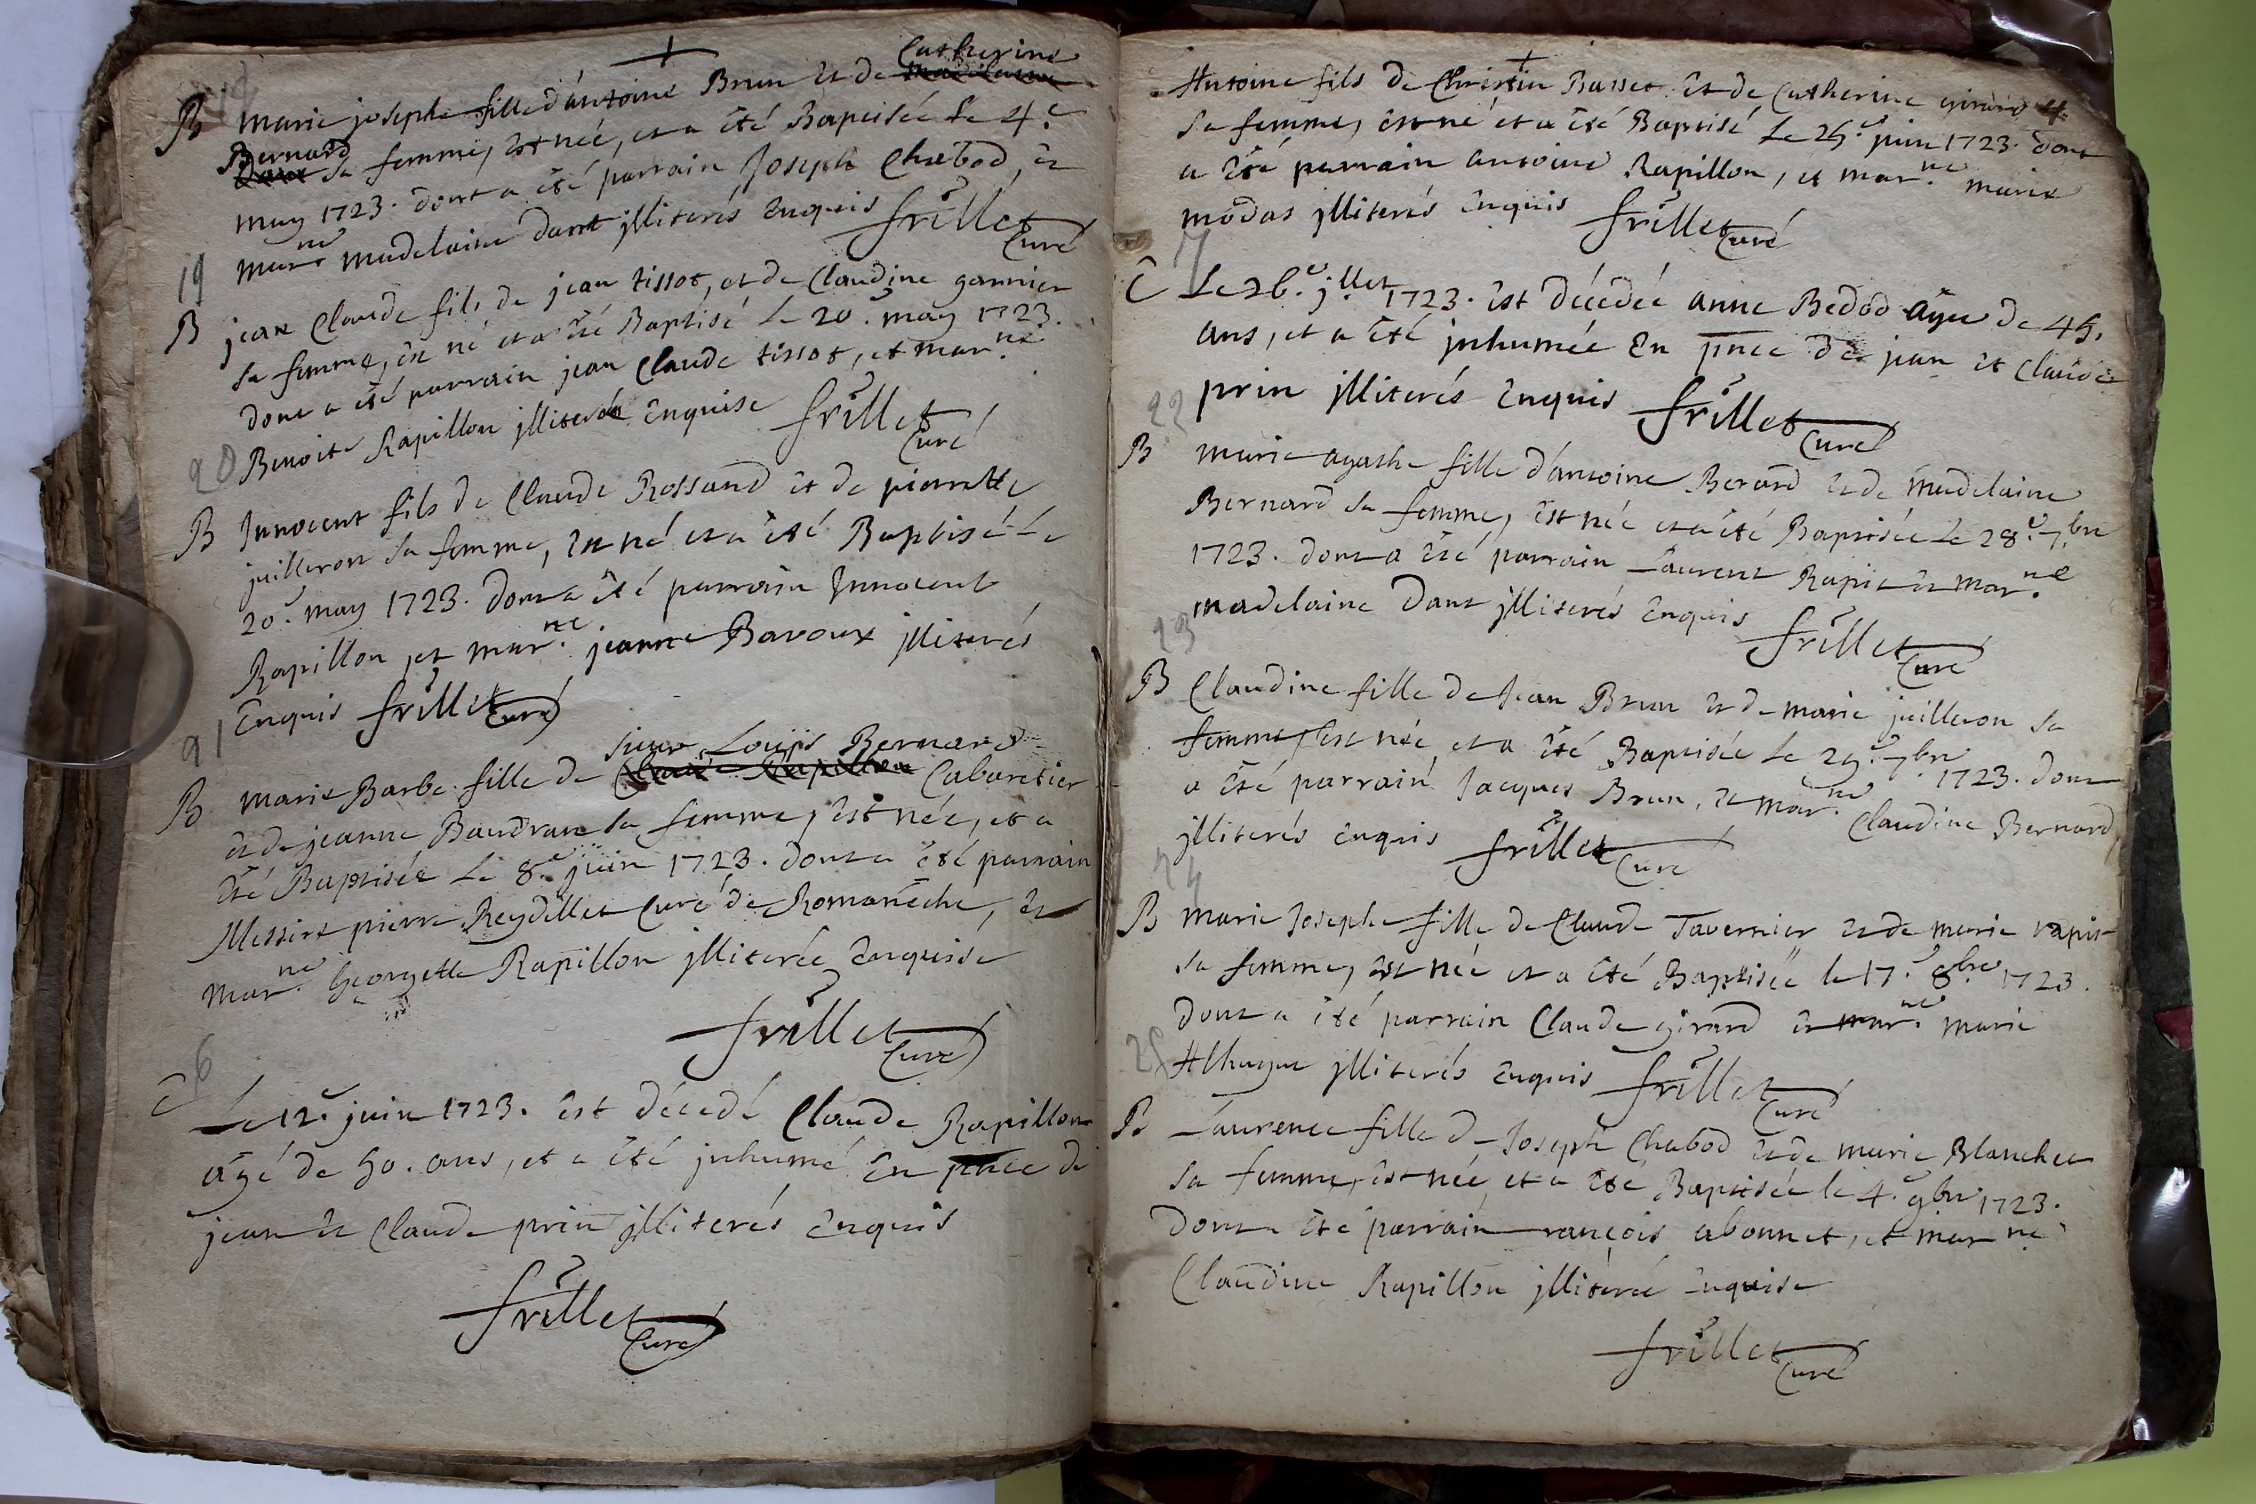 Catherine
18
B marie josephe fille d'antoine Brun et de
Bernard
sa femme, est née, et a été Baptisée Le 4.e
may 1723. dont a été parrain Joseph Chabod, et
mar.ne madelaine dant jlliterés Enquis frillet
Curé
19
B jean Claude fils de jean tissot, et de Claudine garnier
sa femme, est né et a été Baptisé Le 20.e may 1723.
dont a été parrain jean Claude tissot, et mar.ne
Benoite Rapillon jlliterée Enquise frillet
Curé
20
B Innocent fils de Claude Rossand et de pierrette
juilleron sa femme, est né et a été Baptisé Le
20.e may 1723. dont a été parrain Innocent
Rapillon et mar.ne jeanne Bavoux jlliterés
Enquis frillet Curé
21
sieur Louis Bernard
B marie Barbe fille de Claude Rapillon Cabaretier
et de jeanne Baudran sa femme, est née, et a
été Baptisée Le 8.e juin 1723. dont a été parrain
Messire pierre Reydellet Curé de Romanéche, et
mar.ne Georgette Rapillon jlliterée Enquise
frillet
Curé
6
C Le 12.e juin 1723. est décedé Claude Rapillon
âgé de 50. ans, et a été jnhumé En pnce de
jean et Claude prin jlliterés Enquis
frillet
Curé
Antoine fils de Christin Basset et de Catherine girard
sa femme, est né et a été Baptisé Le 25.e juin 1723. dont
a été parrain antoine Rapillon, et mar.ne marie
modas jlliterés Enquis frillet
Curé
7
C Le 26.e j.llet 1723. est décedée anne Bedod âgée de 45.
ans, et a été jnhumée En pnce de jean et Claude
prin jlliterés Enquis frillet
Curé
22
B marie agathe fille d'antoine Berard et de madelaine
Bernard sa femme, est née et a été Baptisée Le 28.e 7.bre
1723. dont a été parrain Laurent Rapit et mar.ne
madelaine Dant jlliterés Enquis frillet
Curé
23
B Claudine fille de Jean Brun et de marie juilleron sa
femme, est née et a été Baptisée Le 29.e 7.bre 1723. dont
a été parrain Jacques Brun, et mar.ne Claudine Bernard
jlliterés Enquis frillet
Curé
24
B Marie Josephe fille de Claude Tavernier et de marie rapit
sa femme, est née et a été Baptisée le 17.e 8.bre 1723.
dont a été parrain Claude girard et mar.ne marie
jlliterés Enquis frillet
Curé
25
B Laurence fille de Joseph Chabod et de marie Blanchet
sa femme, est née, et a été Baptisée le 4.e 9.bre 1723.
dont a été parrain françois abonnet, et mar.ne
Claudine Rapillon jlliterée Enquise
frillet
Curé